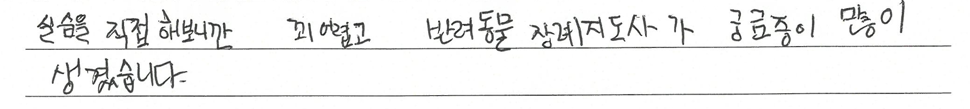 실습을 직접 해보니깐 꾀 어렵고 반려동물 장례지도사가 궁금증이 만흥이
생겼습니다.